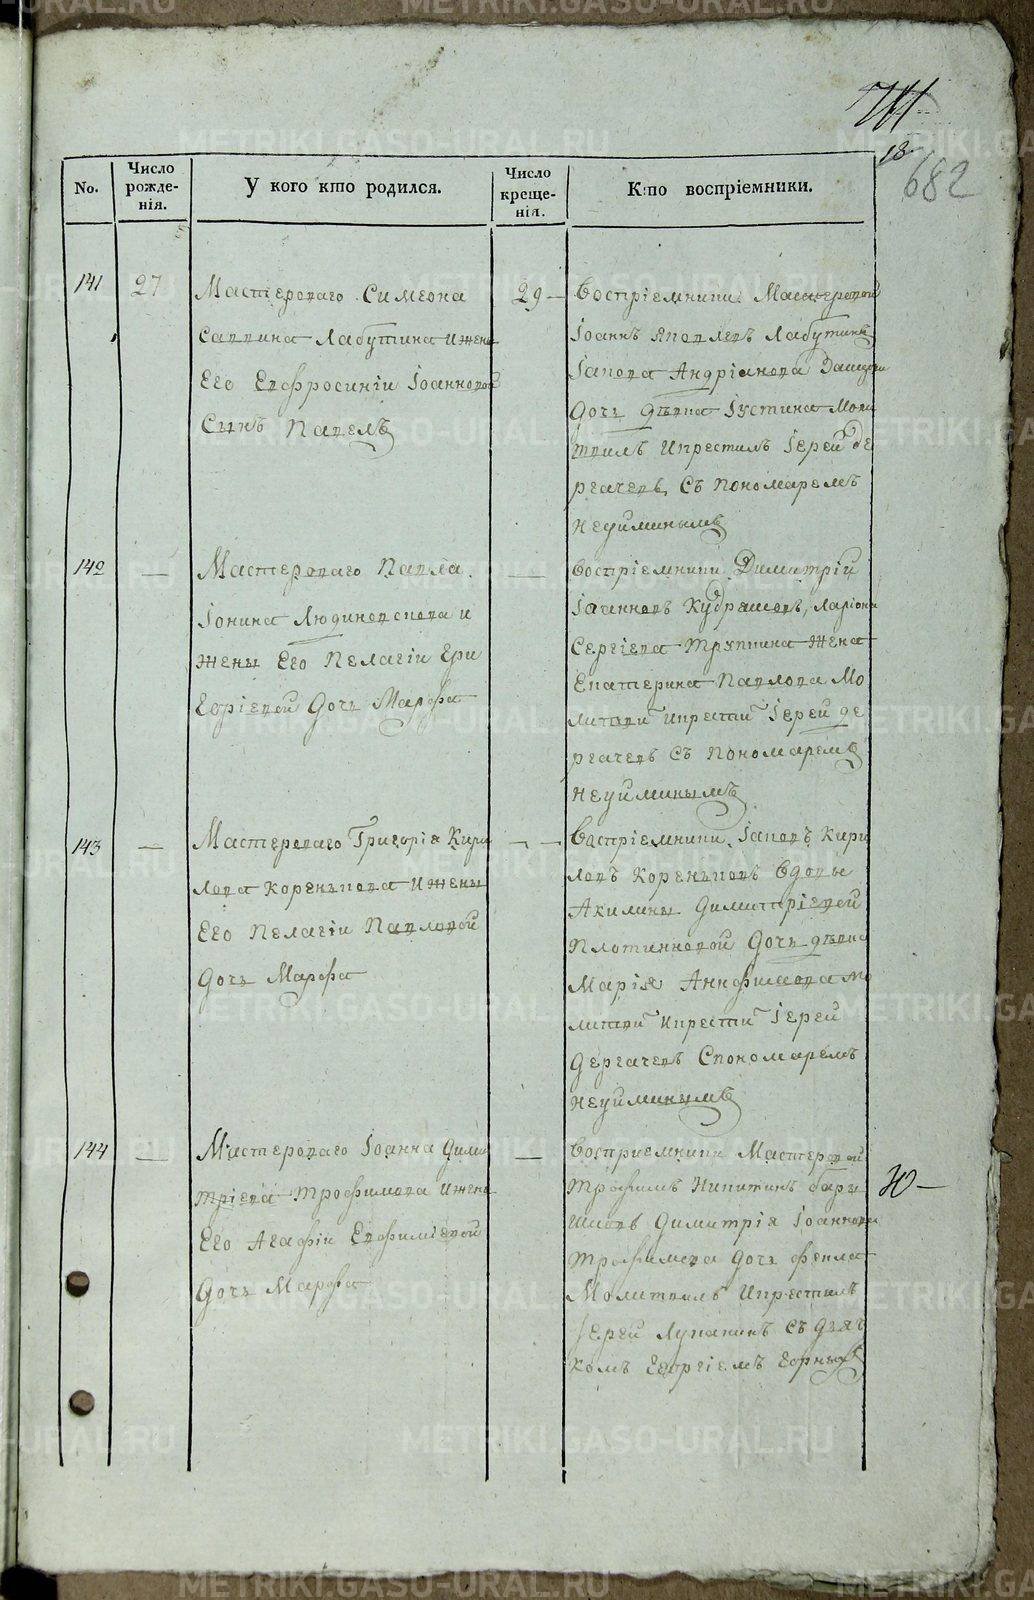 18
682
No.
Число рожде-нія.
У кого кто родился.
Число креще-нія.
Кто воспріемники.
141
27
Мастероваго Симеона
Саввина Лабутина и жены
Его Евфросиніи Іоанновой
Сынъ Павелъ
29 —
Воспріемники Мастеровой
Іоаннъ Лабутинъ
Іакова Андріанова
Дочь дѣвка Іустина Моли
твилъ И крестилъ Іерей Де
ргачевъ Съ пономаремъ
Неуйминымъ
142
—
Мастероваго Павла
Іонина Людиновскова и
жены Его Пелагіи Гри
горіевой Дочь Марфа
—
Воспріемники Димитрій
Кудрашовъ, Ларіона
Сергіева Тряпкина жена
Екатерина Павлова Мо
литви И крести Іерей Де
ргачевъ Съ пономаремъ
Неуйминымъ
143
—
Мастероваго Григорія Кири
лова Коренькова И жены
Его Пелагіи Павловой
Дочь Марфа
— —
Воспріемники Іаковъ Кири
ловъ Кореньковъ Вдовы
Акилины Димитріевой
Плотниковой Дочь дѣвка
Марія Мо
литви И крести Іерей
Дергачевъ Спономаремъ
Неуйминымъ
144
—
Мастероваго Іоанна Дими
тріева Трофимова И жены
Его Агафіи Евфиміевой
Дочь Марфа
—
Восприемники Мастеровой
Трофимъ Никитинъ Бары
шовъ Димитрія Іоаннова
Трофимова Дочь Фекла
Молитвилъ И крестилъ
Іерей Лукакинъ Съ Дьяч
комъ Георгіемъ
METRIKI.GASO-URAL.RU